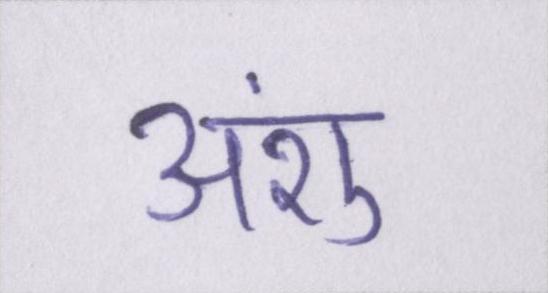 अंशु